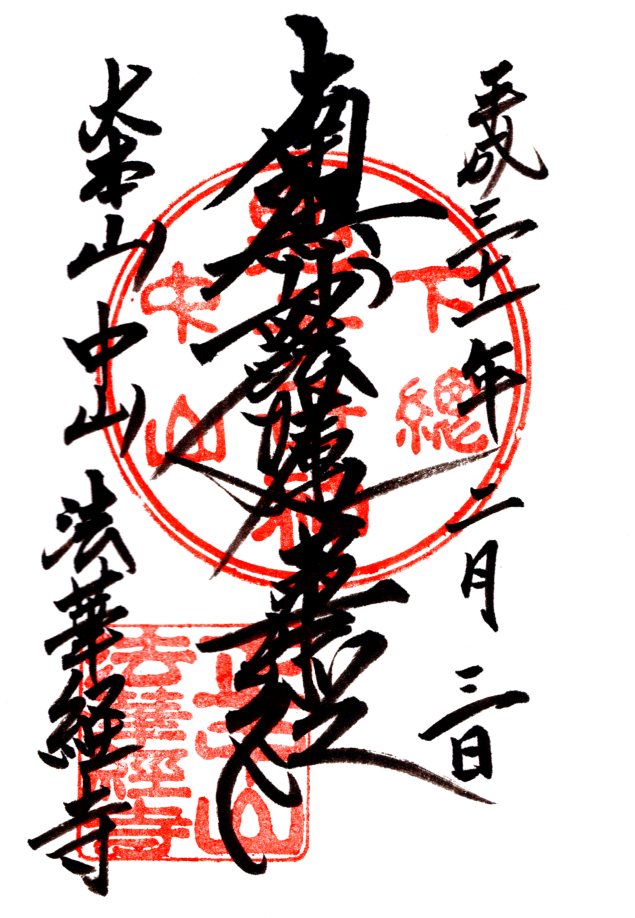 平成三十一年二月三日
南無妙法蓮華経
大本山中山法華経寺
下總
中山
正中山
法華經寺